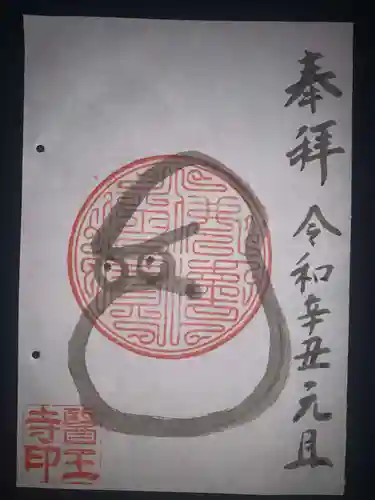 奉拝
令和辛丑元旦
醫王
寺印